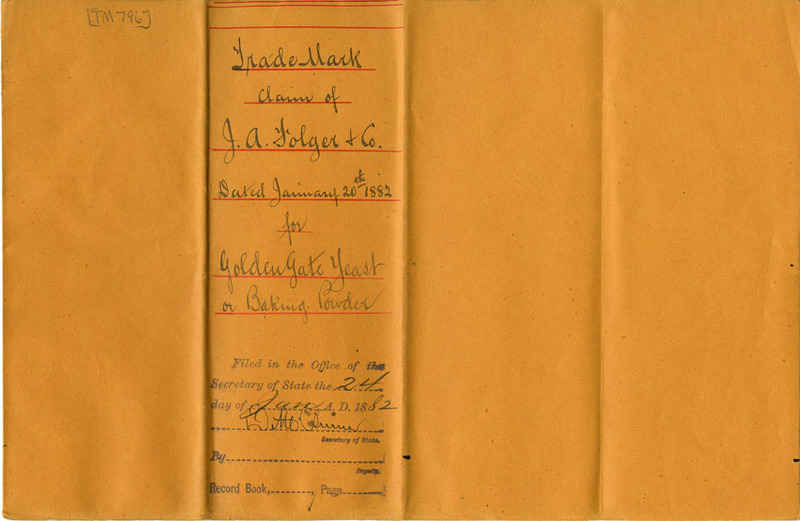 [TM 796]
Trade Mark
claim of
J. A. Folger & Co.
Dated January 20th 1882
for
Golden Gate Yeast
or Baking Powder
Filed in the Office of the
Secretary of State the 24
day of Jan A. D. 1882
Secretary of State.
By
Deputy.
Record Book, , Page